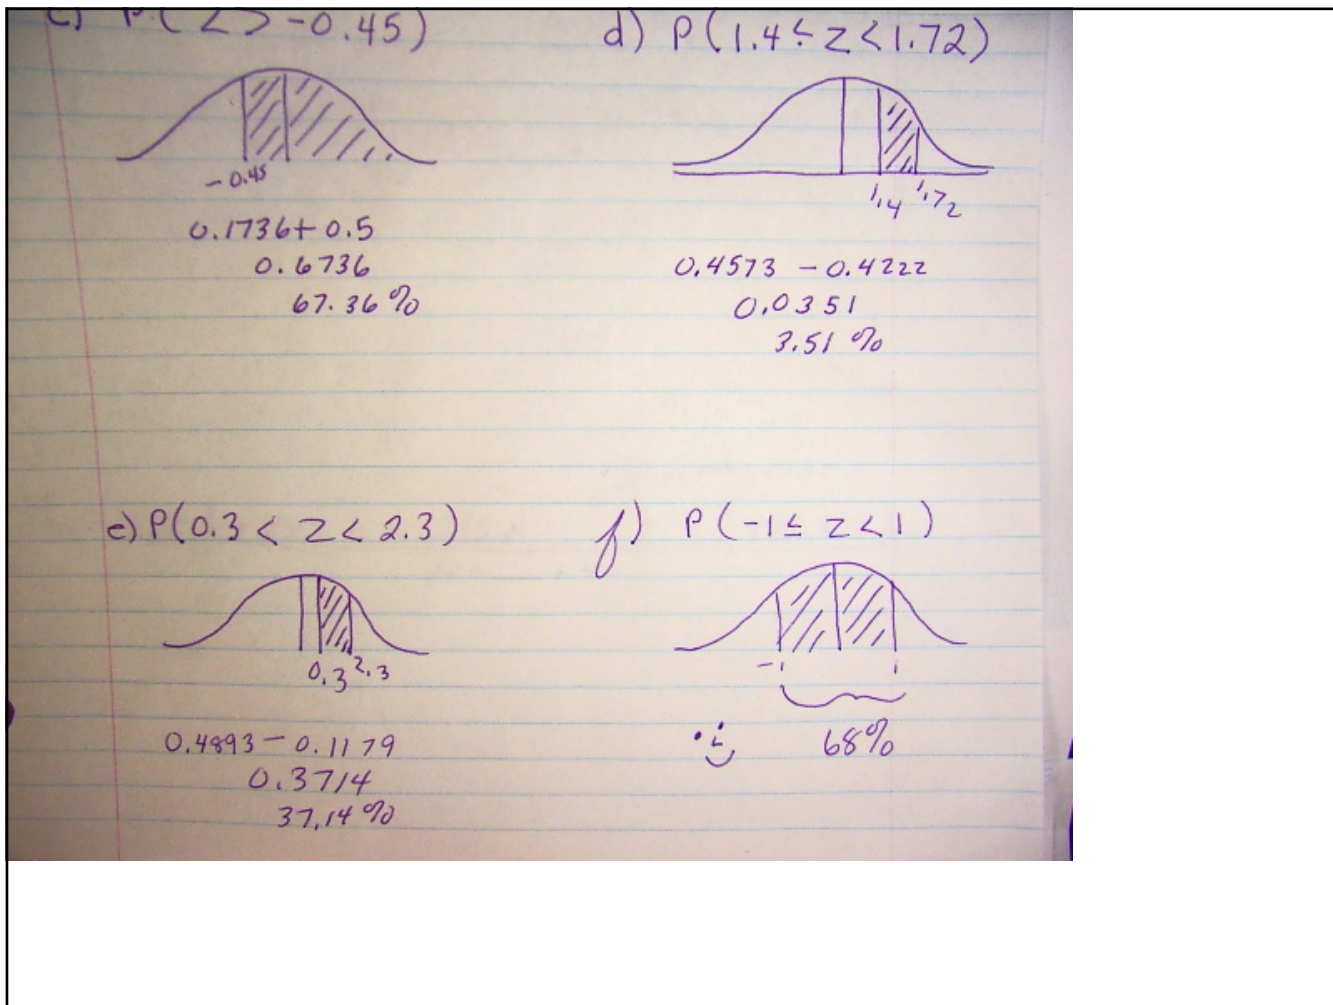 c) P(Z > -0.45)
-0.45
0.1736 + 0.5
0.6736
67.36 %
d) P(1.4 ≤ Z < 1.72)
1.4 1.72
0.4573 - 0.4222
0.0351
3.51 %
e) P(0.3 < Z < 2.3)
0.3 2.3
0.4893 - 0.1179
0.3714
37.14 %
f) P(-1 ≤ Z < 1)
-1 1
68%